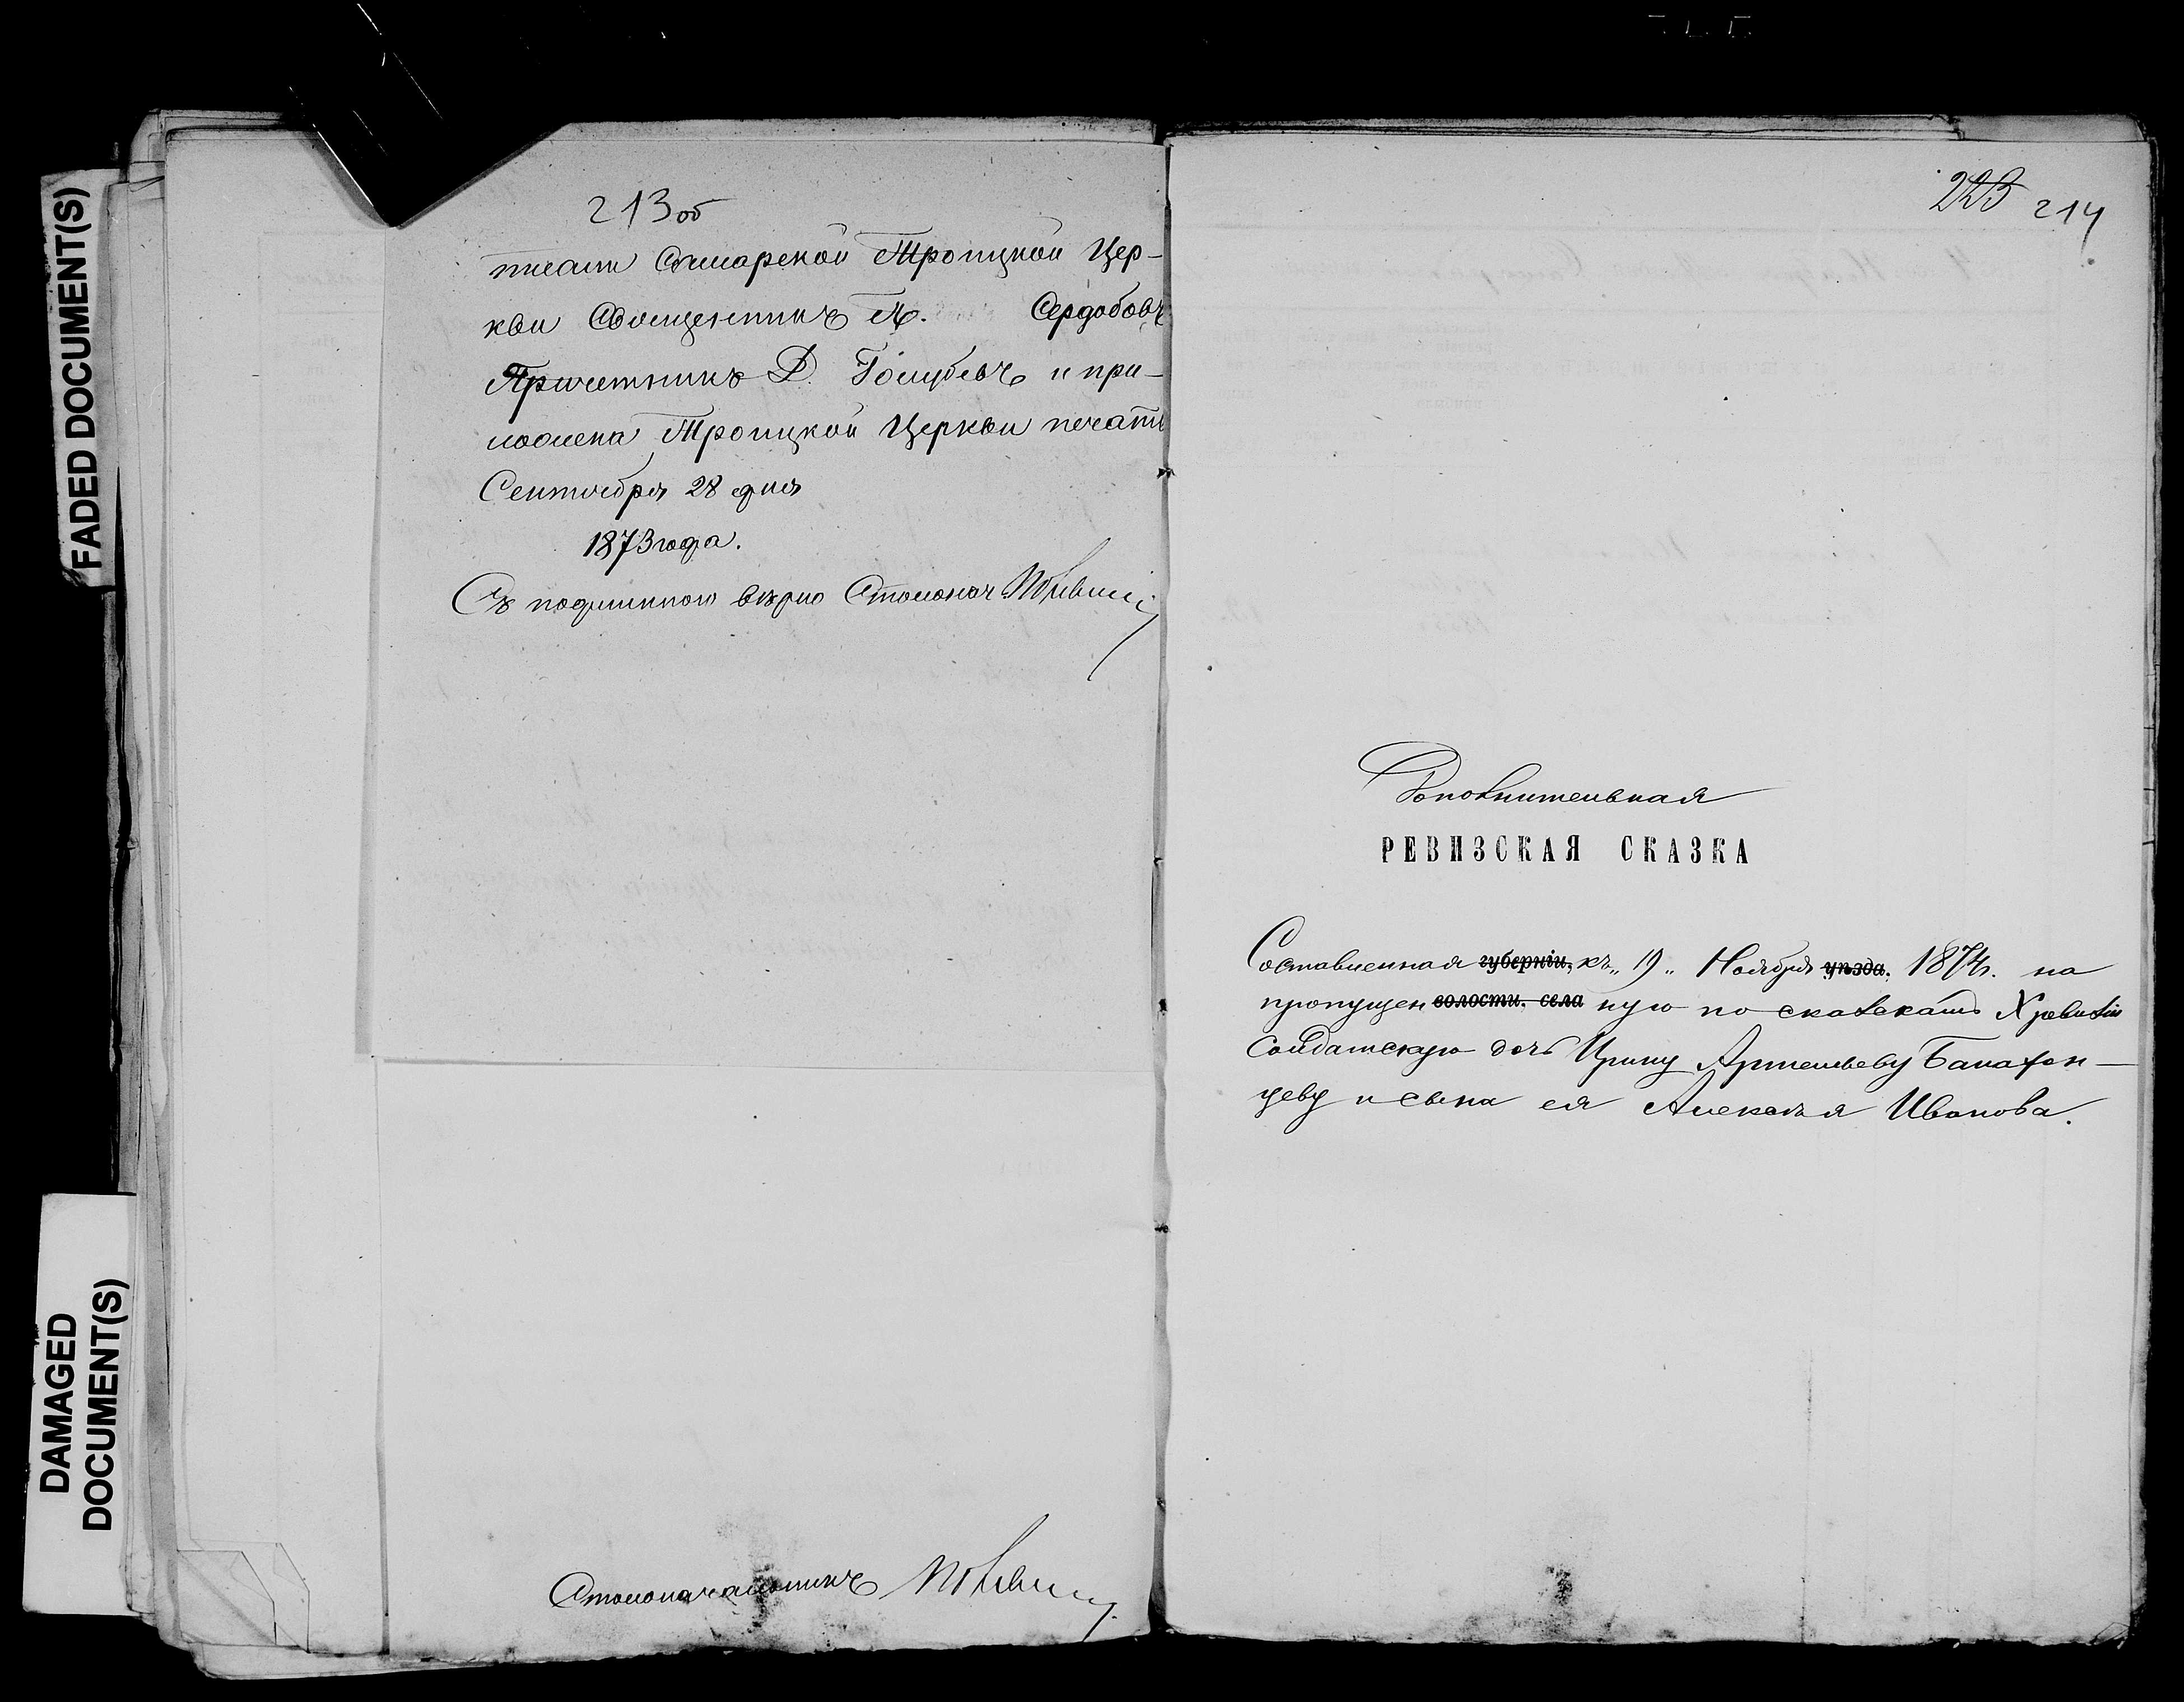 FADED DOCUMENT(S)
DAMAGED
DOCUMENT(S)
213 об
писали Самарской Троицкой Цер-
кви Священникъ А. Сердобовъ
Причетникъ Д. Голубевъ и при-
ложена Троицкой Церкви печать
Сентября 28 дня
1873 года.
Съ подлиннымъ вѣрно Столонач
Столоначальникъ
223 214
Дополнительная
РЕВИЗСКАЯ СКАЗКА
Составленная губерніи, къ „19„ Ноября уѣзда. 1874г. на
пропущен волости, села ную по сказкамъ X ревизіи
Солдатскую дочь Ирину Артемьеву Балахон-
цеву и сына ея Алексѣя Иванова.